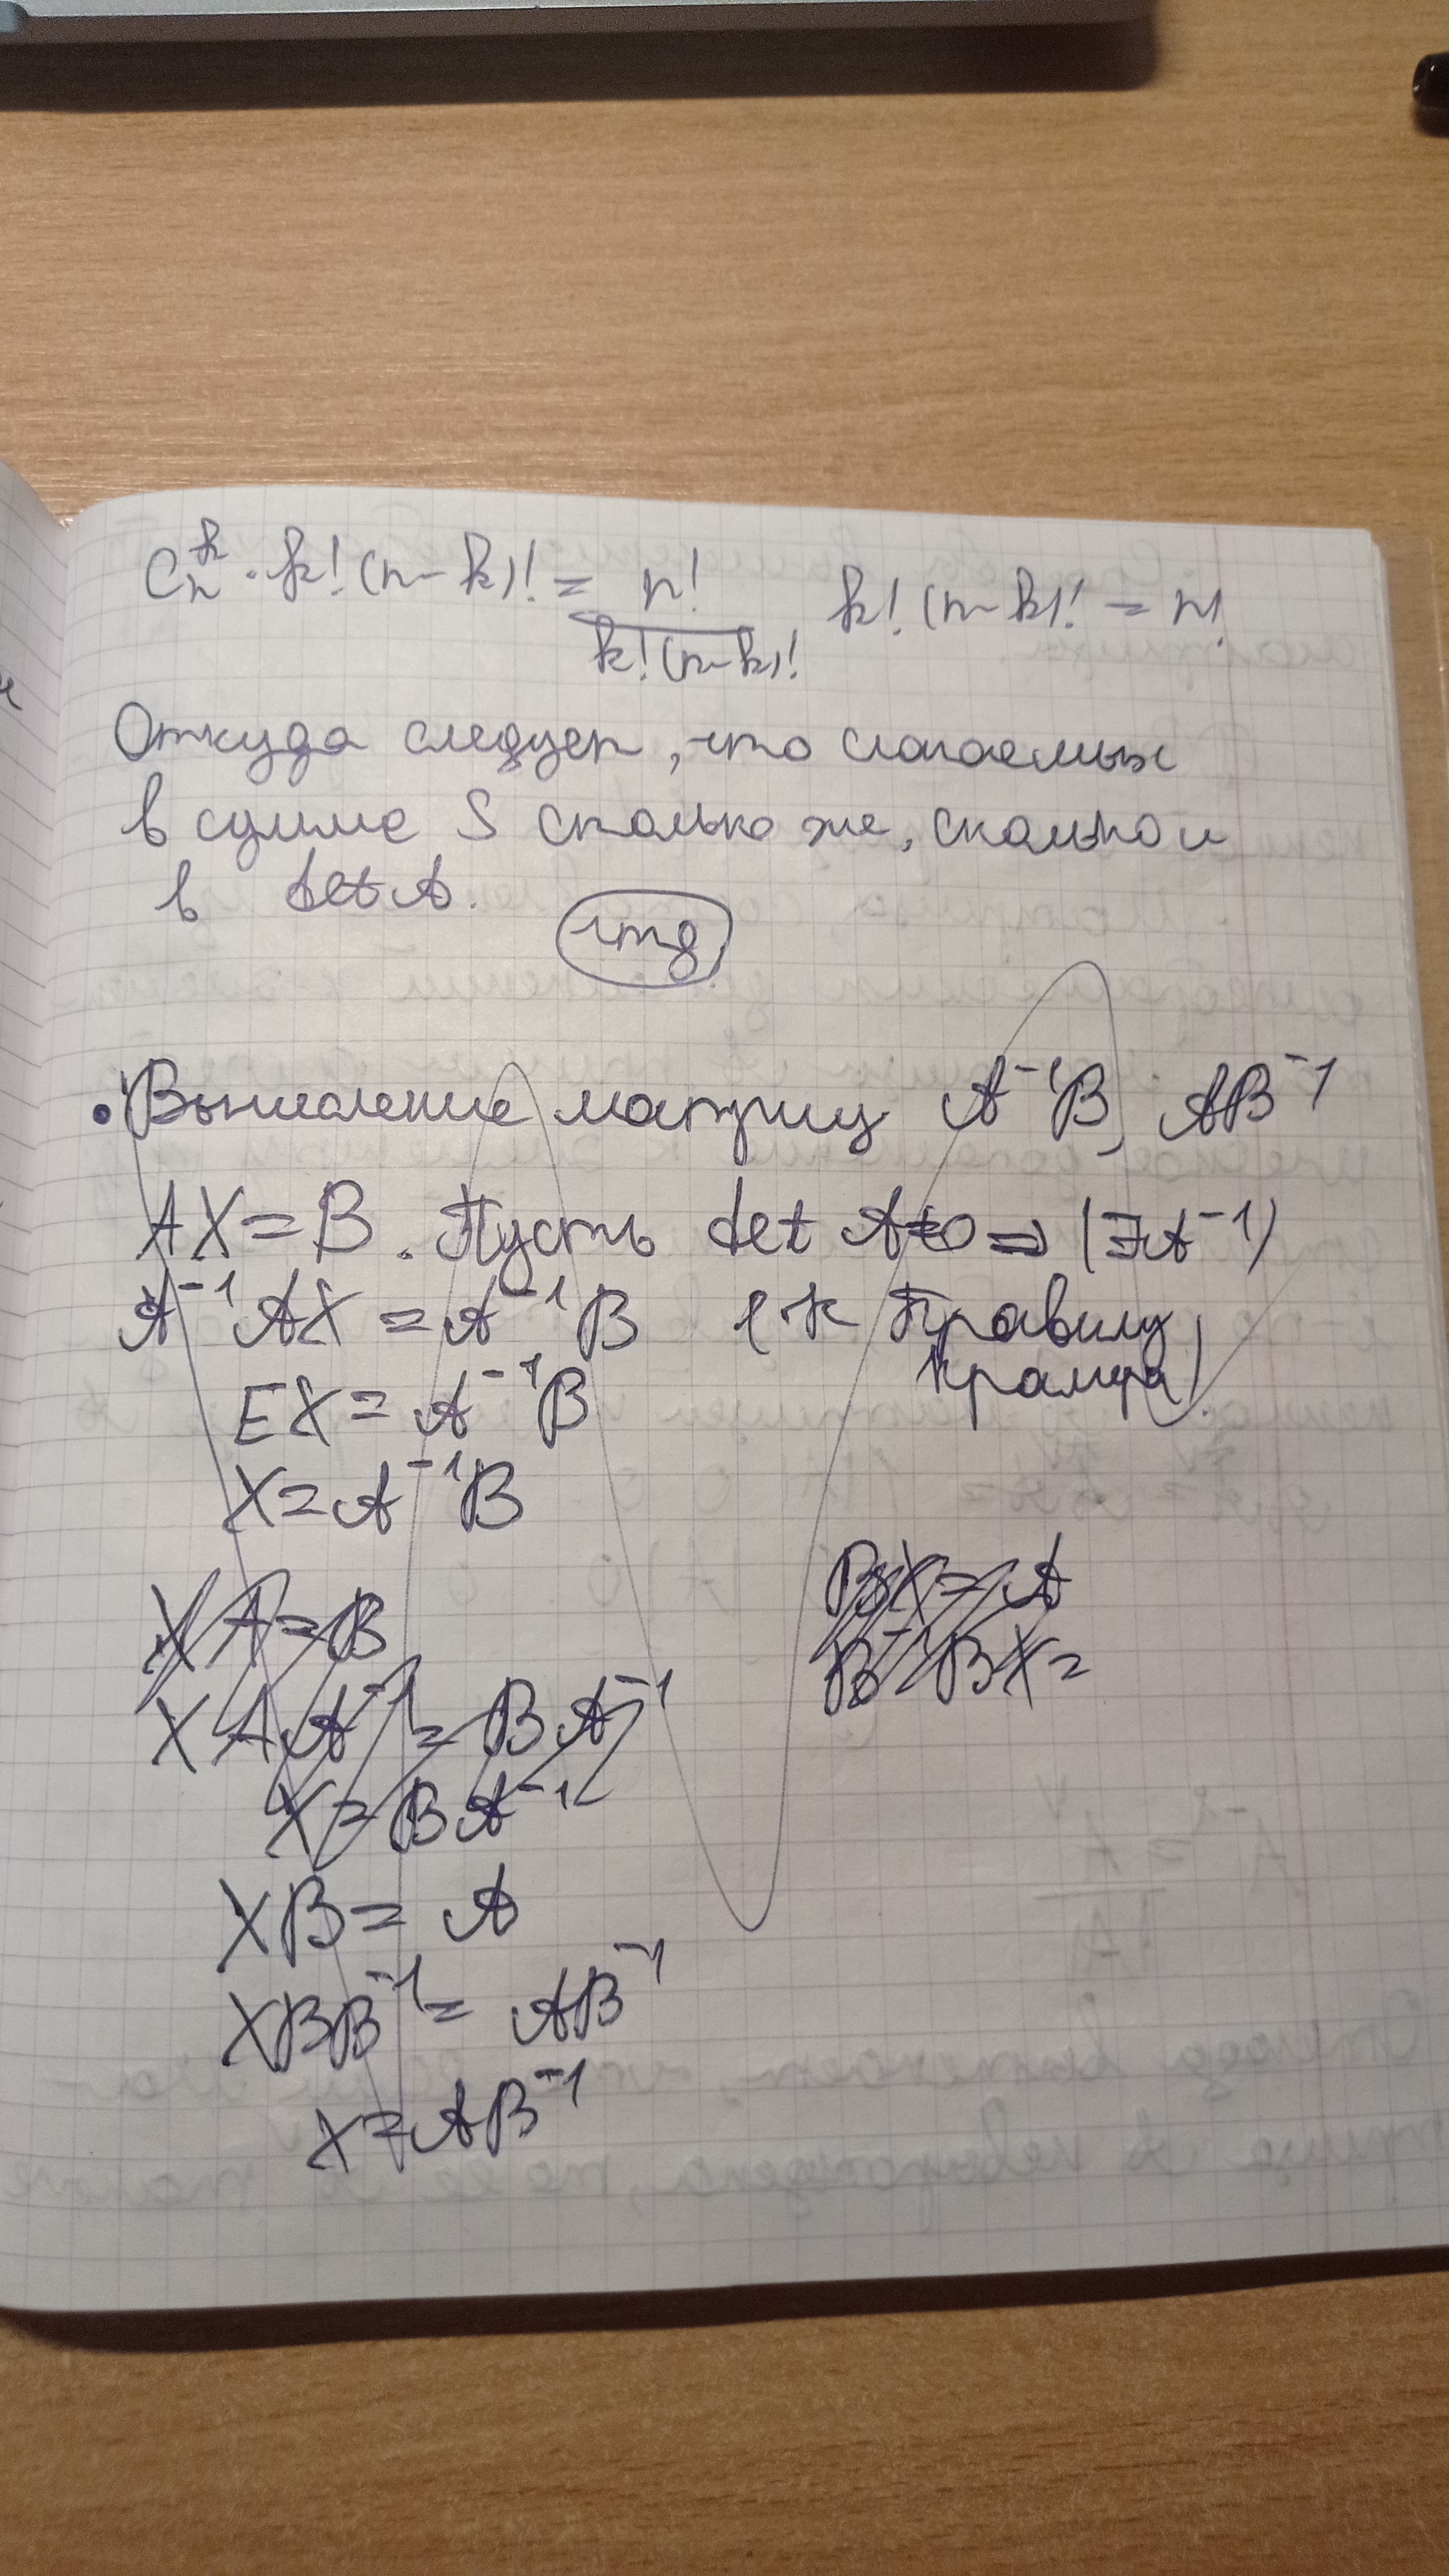 C_n^k · k! (n-k)! = n! / k!(n-k)! k! (n-k)! = n!
Откуда следует, что слагаемых
в сумме S столько же, сколько и
в det A.
чтд.
• Вычисление матриц A⁻¹B, AB⁻¹
AX = B. Пусть det A≠0 ⇒ (∃A⁻¹)
A⁻¹AX = A⁻¹B (к Правилу
Крамера)
EX = A⁻¹B
X = A⁻¹B
XA = B
BX = A
XAA⁻¹ = BA⁻¹
B⁻¹BX =
X = BA⁻¹
XB = A
XBB⁻¹ = AB⁻¹
X = AB⁻¹